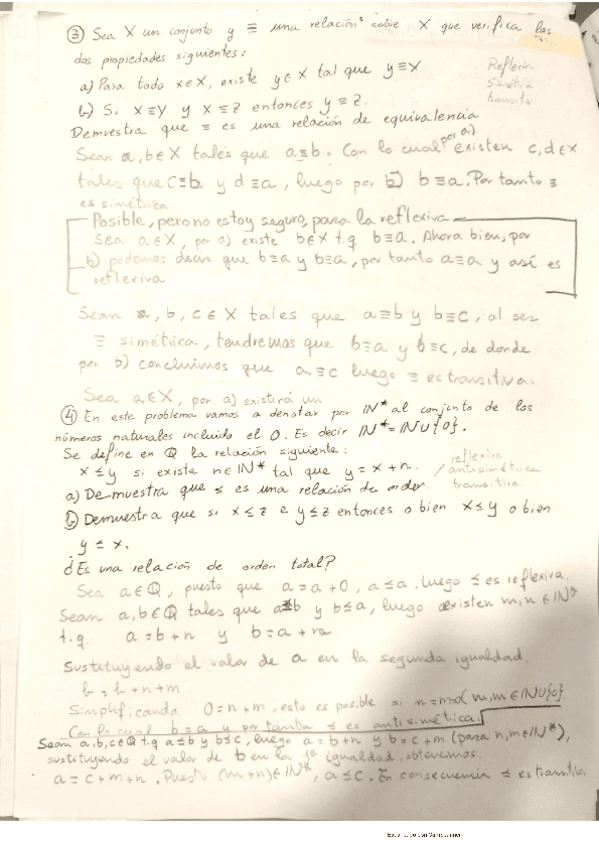 ③ Sea X un conjunto y ≡ una relación sobre X que verifica las
dos propiedades siguientes:
a) Para todo x∈X, existe y∈X tal que y≡x
b) Si x≡y y x≡z entonces y≡z.
Demuestra que ≡ es una relación de equivalencia
Reflexiva
Simétrica
transitiva
Sean a, b∈X tales que a≡b. Con lo cual por a) existen c, d∈X
tales que c≡b y d≡a, luego por b) b≡a. Por tanto ≡
es simétrica
Posible, pero no estoy seguro, para la reflexiva
Sea a∈X, por a) existe b∈X t.q b≡a. Ahora bien, por
b) podemos decir que b≡a y b≡a, por tanto a≡a y así es
reflexiva
Sean a, b, c∈X tales que a≡b y b≡c, al ser
≡ simétrica, tendremos que b≡a y b≡c, de donde
por b) concluimos que a≡c luego ≡ es transitiva.
Sea a∈X, por a) existirá un
④ En este problema vamos a denotar por IN* al conjunto de los
números naturales incluido el 0. Es decir IN* = IN∪{0}.
Se define en Q la relación siguiente:
x≤y si existe n∈IN* tal que y = x + n.
reflexiva
antisimétrica
transitiva
a) Demuestra que ≤ es una relación de orden.
b) Demuestra que si x≤z e y≤z entonces o bien x≤y o bien
y≤x.
¿Es una relación de orden total?
Sea a∈Q, puesto que a = a+0, a≤a. Luego ≤ es reflexiva.
Sean a, b∈Q tales que a≤b y b≤a, luego existen m, n∈IN*
t.q. a = b + n y b = a + m
Sustituyendo el valor de a en la segunda igualdad.
b = b + n + m
Simplificando 0 = n + m, esto es posible si n=m=0 (n, m ∈ IN∪{0})
Con lo cual b = a y por tanto ≤ es antisimétrica.
Sean a, b, c∈Q t.q a≤b y b≤c, luego a = b+n y b = c+m (para n, m∈IN*),
sustituyendo el valor de b en la 1ª igualdad, obtenemos:
a = c+m+n. Puesto (m+n)∈IN*, a≤c. En consecuencia ≤ es transitiva